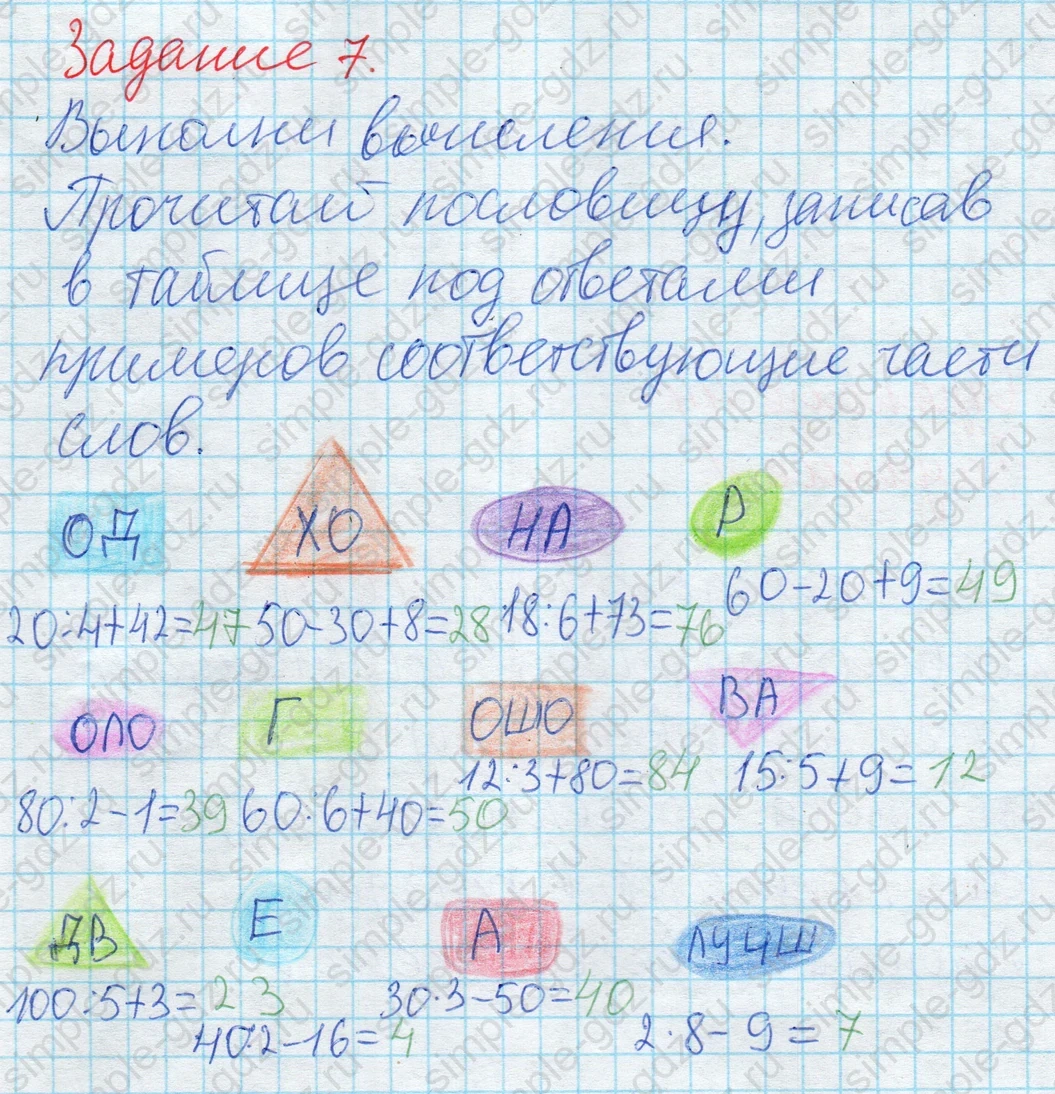 Задание 7.
Выполни вычисления.
Прочитай пословицу, записав
в таблице под ответами
примеров соответствующие части
слов.
ОД ХО НА Р
20:4+42=47 50-30+8=28 18:6+73=76 60-20+9=49
ОЛО Г ОШО ВА
80:2-1=39 60:6+40=50 12:3+80=84 15:5+9=12
ДВ Е А ЛУЧШ
100:5+3=23 40:2-16=4 30·3-50=40 2·8-9=7
simple-gdz.ru